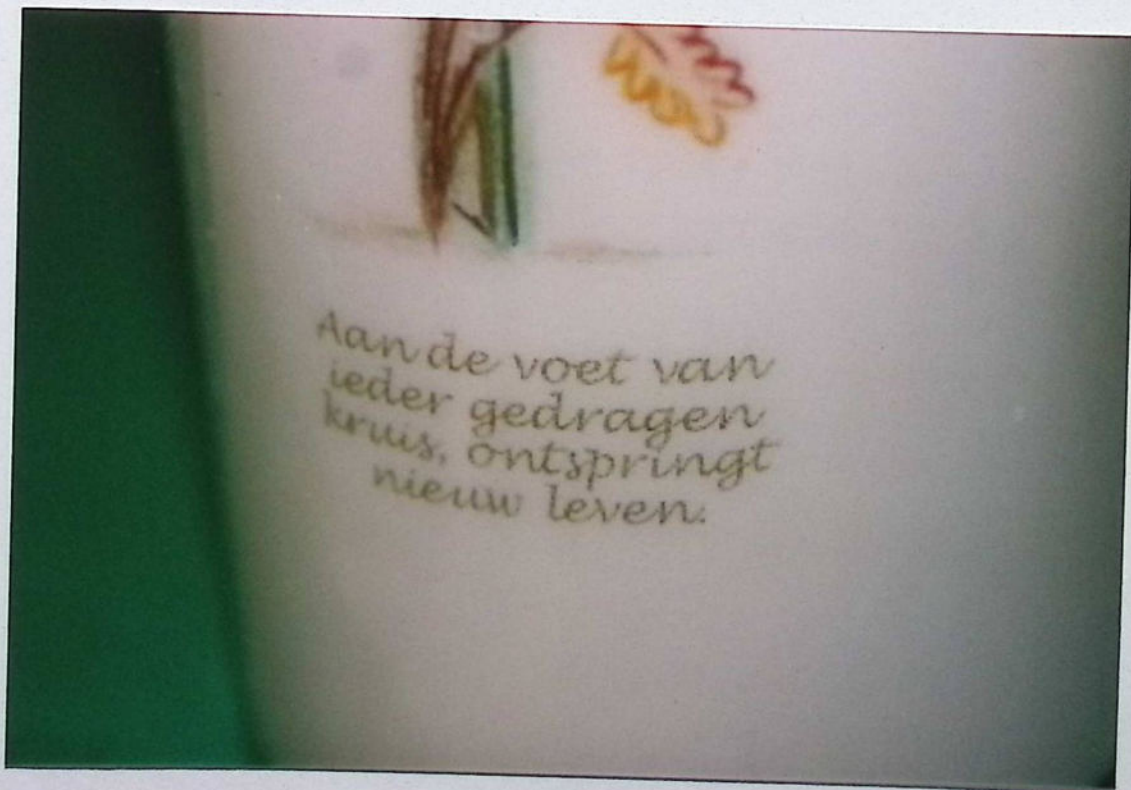 Aan de voet van
ieder gedragen
kruis, ontspringt
nieuw leven.